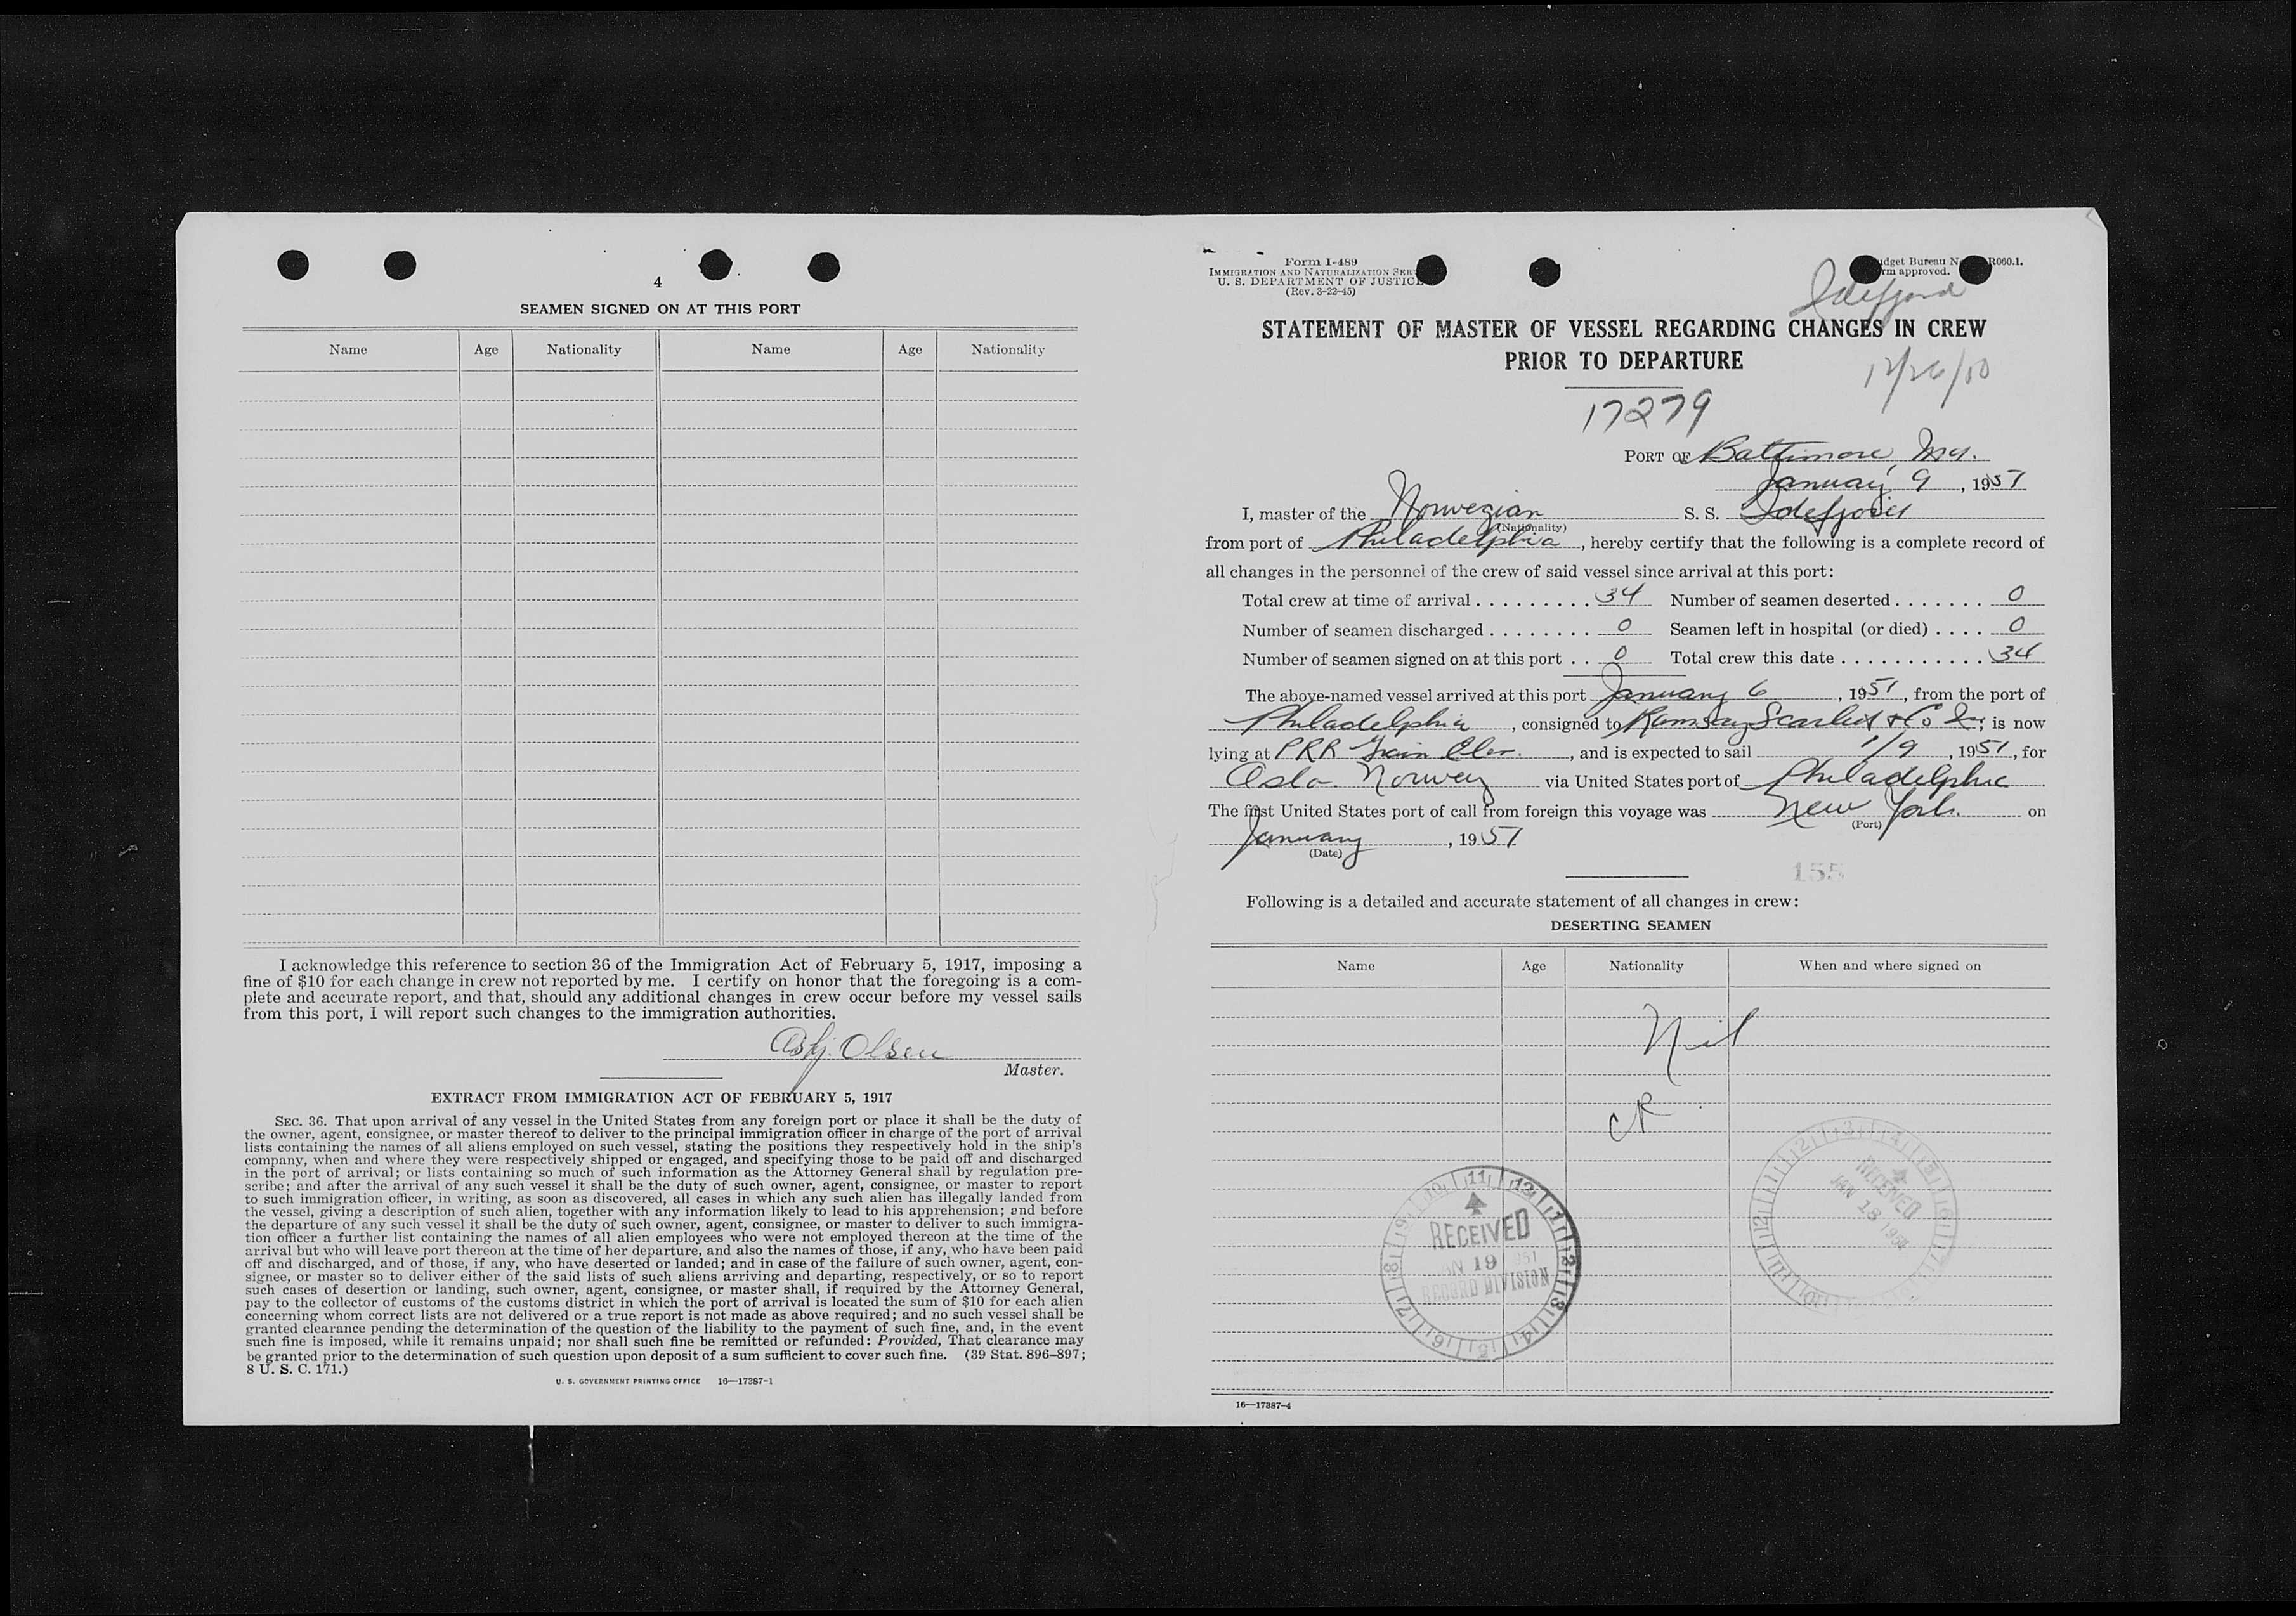 4
SEAMEN SIGNED ON AT THIS PORT
Name Age Nationality Name Age Nationality
I acknowledge this reference to section 36 of the Immigration Act of February 5, 1917, imposing a
fine of $10 for each change in crew not reported by me. I certify on honor that the foregoing is a com-
plete and accurate report, and that, should any additional changes in crew occur before my vessel sails
from this port, I will report such changes to the immigration authorities.
Asbj. Olsen
Master.
EXTRACT FROM IMMIGRATION ACT OF FEBRUARY 5, 1917
SEC. 36. That upon arrival of any vessel in the United States from any foreign port or place it shall be the duty of
the owner, agent, consignee, or master thereof to deliver to the principal immigration officer in charge of the port of arrival
lists containing the names of all aliens employed on such vessel, stating the positions they respectively hold in the ship's
company, when and where they were respectively shipped or engaged, and specifying those to be paid off and discharged
in the port of arrival; or lists containing so much of such information as the Attorney General shall by regulation pre-
scribe; and after the arrival of any such vessel it shall be the duty of such owner, agent, consignee, or master to report
to such immigration officer, in writing, as soon as discovered, all cases in which any such alien has illegally landed from
the vessel, giving a description of such alien, together with any information likely to lead to his apprehension; and before
the departure of any such vessel it shall be the duty of such owner, agent, consignee, or master to deliver to such immigra-
tion officer a further list containing the names of all alien employees who were not employed thereon at the time of the
arrival but who will leave port thereon at the time of her departure, and also the names of those, if any, who have been paid
off and discharged, and of those, if any, who have deserted or landed; and in case of the failure of such owner, agent, con-
signee, or master so to deliver either of the said lists of such aliens arriving and departing, respectively, or so to report
such cases of desertion or landing, such owner, agent, consignee, or master shall, if required by the Attorney General,
pay to the collector of customs of the customs district in which the port of arrival is located the sum of $10 for each alien
concerning whom correct lists are not delivered or a true report is not made as above required; and no such vessel shall be
granted clearance pending the determination of the question of the liability to the payment of such fine, and, in the event
such fine is imposed, while it remains unpaid; nor shall such fine be remitted or refunded: Provided, That clearance may
be granted prior to the determination of such question upon deposit of a sum sufficient to cover such fine. (39 Stat. 896–897;
8 U. S. C. 171.)
U. S. GOVERNMENT PRINTING OFFICE 16—17387-1
Form I-489
IMMIGRATION AND NATURALIZATION SER
U. S. DEPARTMENT OF JUSTICE
(Rev. 3-22-45)
dget Bureau N R060.1.
rm approved.
Idefjord
STATEMENT OF MASTER OF VESSEL REGARDING CHANGES IN CREW
PRIOR TO DEPARTURE
12/26/50
17279
PORT OF Baltimore, Md.
January 9, 1951
I, master of the Norwegian S. S. Idefjord
(Nationality)
from port of Philadelphia, hereby certify that the following is a complete record of
all changes in the personnel of the crew of said vessel since arrival at this port:
Total crew at time of arrival . . . . . . . . . 34 Number of seamen deserted . . . . . . . 0
Number of seamen discharged . . . . . . . . 0 Seamen left in hospital (or died) . . . . 0
Number of seamen signed on at this port . . 0 Total crew this date . . . . . . . . . . . 34
The above-named vessel arrived at this port January 6, 1951, from the port of
Philadelphia, consigned to Ramsay Scarlett & Co Inc, is now
lying at PRR Grain Elev., and is expected to sail 1/9, 1951, for
Oslo. Norway via United States port of Philadelphia
The first United States port of call from foreign this voyage was New York on
(Port)
January, 1951
(Date)
155
Following is a detailed and accurate statement of all changes in crew:
DESERTING SEAMEN
Name Age Nationality When and where signed on
Nil
RECEIVED
JAN 18 1951
RECEIVED
N 19 951
RECORD DIVISION
16—17387-4